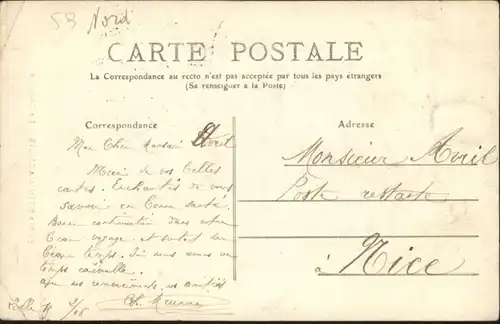 59 Nord
CARTE POSTALE
La Correspondance au recto n'est pas acceptée par tous les pays étrangers
(Se renseigner à la Poste)
Correspondance
Adresse
Mon Cher Monsieur Avril
Merci de vos belles
cartes. Enchantés de vous
savoir en bonne santé.
Bonne continuation dans votre
beau voyage et surtout du
beau temps. Ici nous avons un
temps
Monsieur Avril
Poste restante
à Nice